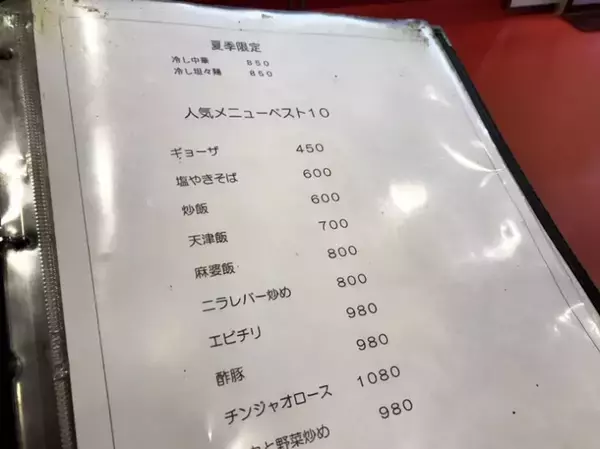 夏季限定
冷し中華 850
冷し坦々麺 850
人気メニューベスト10
ギョーザ 450
塩やきそば 600
炒飯 600
天津飯 700
麻婆飯 800
ニラレバー炒め 800
エビチリ 980
酢豚 980
チンジャオロース 1080
と野菜炒め 980